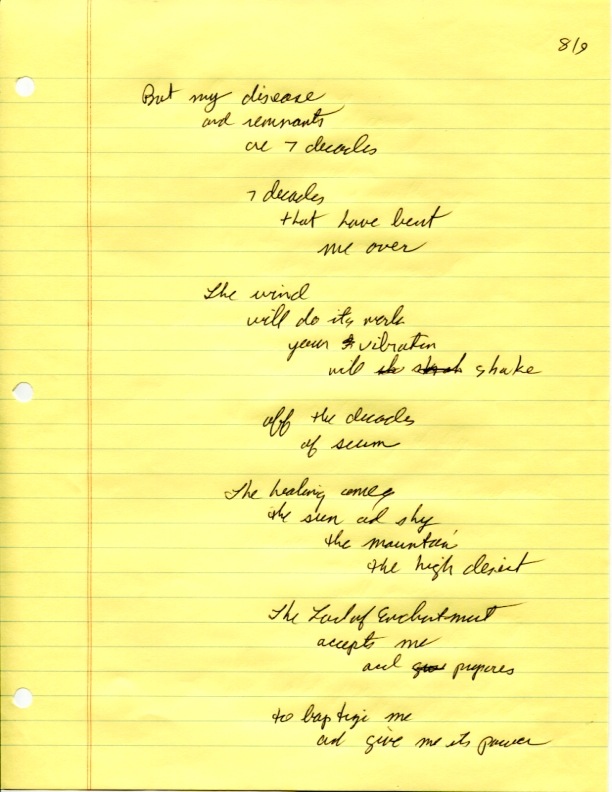 8/9
But my disease
and remnants
are 7 decades
7 decades
that have bent
me over
The wind
will do its work
your vibration
will shake
off the decades
of scum
The healing comes
the sun and sky
the mountain
the high desert
The Land of Enchantment
accepts me
and prepares
to baptize me
and give me its power